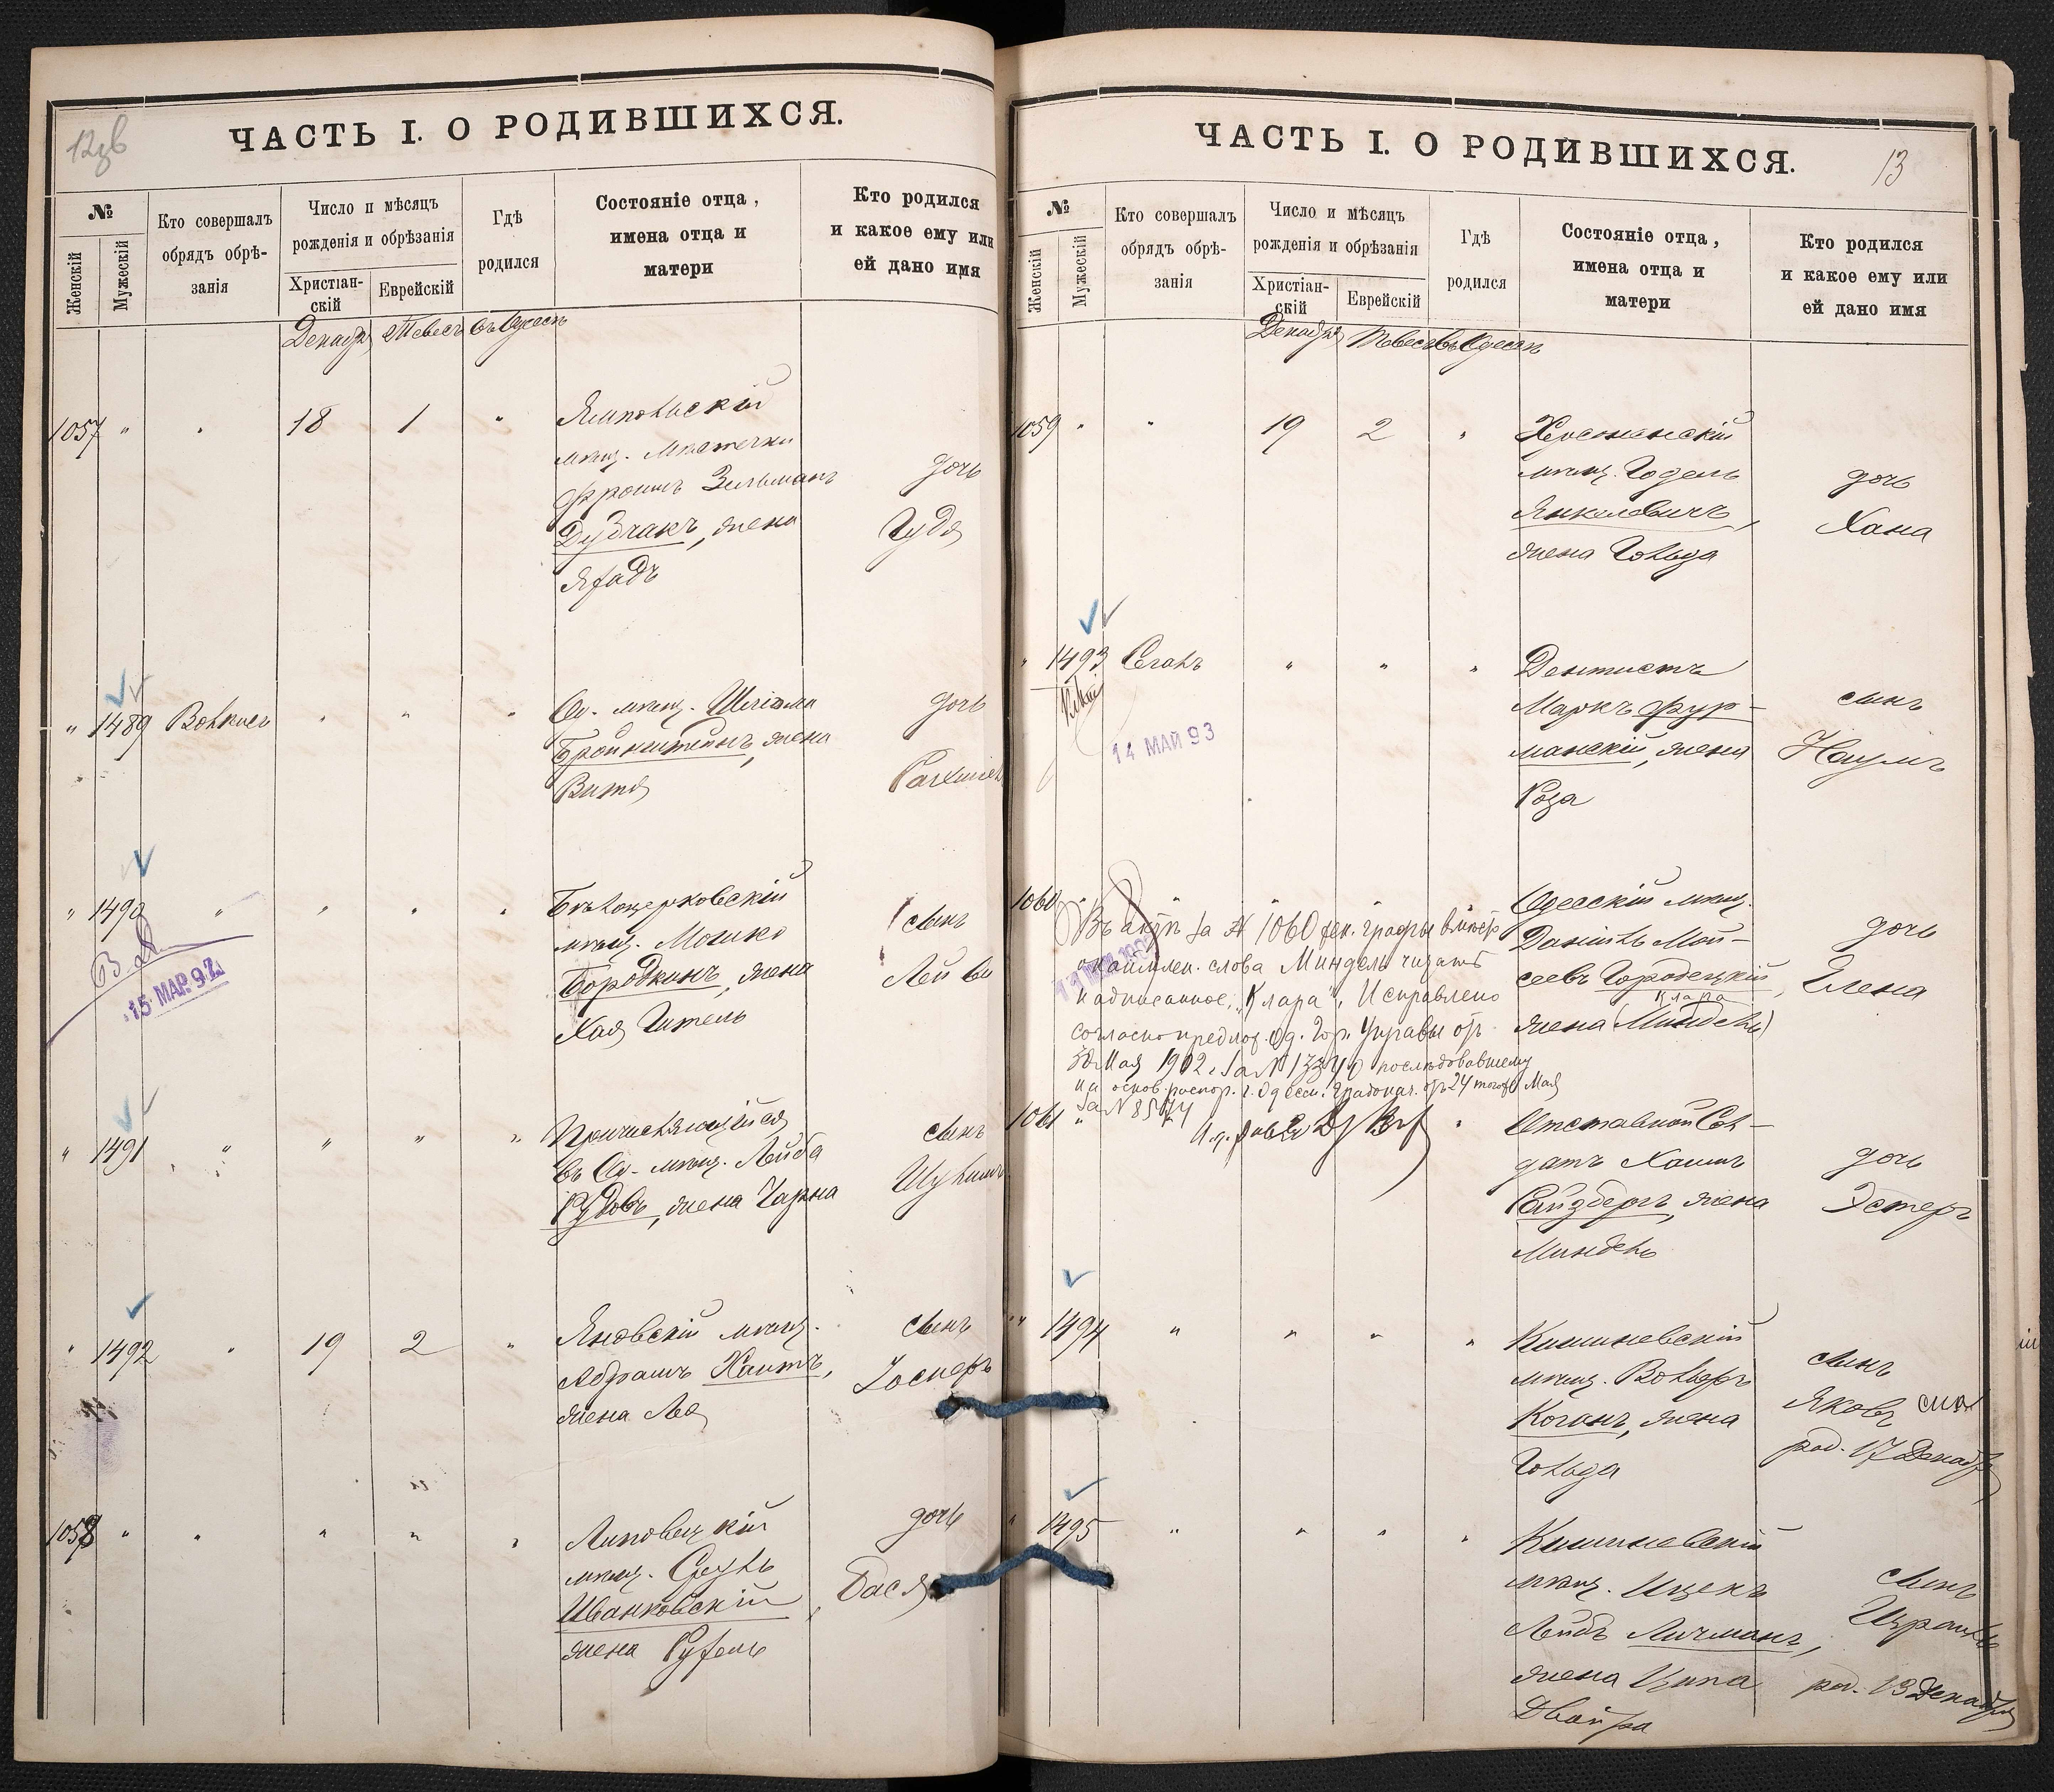 12об
ЧАСТЬ I. О РОДИВШИХСЯ.
№
Женскій
Мужескій
Кто совершалъ
обрядъ обрѣ-
занія
Число и мѣсяцъ
рожденія и обрѣзанія
Христіан-
скій
Еврейскій
Гдѣ
родился
Состояніе отца,
имена отца и
матери
Кто родился
и какое ему или
ей дано имя
Декабр Тевесъ въ Одессѣ
1057 " " 18 1 "
Ямпольскій
мѣщ. местечки
Фроимъ Зельманъ
Дубчакъ, жена
дочь
Гудя
" 1489 " " "
Од. мѣщ. Шлiома
Бронштейнъ, жена
Витя
дочь
" 1490 " " " "
15 МАР. 97
Бѣлоцерковскій
мѣщ. Мошко
Бородкинъ, жена
Хая Гитель
сынъ
Лейба
" 1491 " " " "
Причисляющійся
въ Од. мѣщ. Лейба
Рудовъ, жена Чарна
сынъ
Шулимъ
" 1492 " 19 2 "
Яновскій мѣщ.
Абрамъ Хаитъ,
жена Лея
сынъ
Іосифъ
1058 " " " " "
Липовецкій
мѣщ. Срулъ
Иванковскій
жена Рухель
дочь
Бася
ЧАСТЬ I. О РОДИВШИХСЯ.
13
№
Женскій
Мужескій
Кто совершалъ
обрядъ обрѣ-
занія
Число и мѣсяцъ
рожденія и обрѣзанія
Христіан-
скій
Еврейскій
Гдѣ
родился
Состояніе отца,
имена отца и
матери
Кто родился
и какое ему или
ей дано имя
Декабр Тевесъ въ Одессѣ
1059 " " 19 2 "
Херсонскій
мѣщ. Годель
Янкелевичъ,
жена Гольда
дочь
Хана
" 1493 Сегалъ " " "
14 МАЙ 93
Дентистъ
Маркъ Фур-
манскій, жена
Роза
сынъ
Наумъ
1060 " " " " "
Одесскій мѣщ.
Данiилъ Мой-
сеевъ Городецкій,
Клара
жена (Миндель)
дочь
Елена
Въ актѣ за № 1060 жен. графы вмѣсто
окаймлен. слова Миндель читать
надписанное: "Клара". Исправлено
согласно предлож. Од. Гор. Управы отъ
30 Мая 1902 г. за № 13340 послѣдовавшему
на основ. распор. г. Одесск. Градонач. отъ 24 того же Мая
за № 8574
1061 " "
Отставной Сол-
датъ Хаимъ
Рейзбергъ, жена
Миндель
дочь
Эстеръ
" 1494 " " " "
Кишиневскій
мѣщ. Вольфъ
Коганъ, жена
Гольда
сынъ
Яковъ
род. 17 Декабр
" 1495 " " " "
Кишиневскій
мѣщ. Ицекъ
Лейбъ Личманъ,
жена Ципа
Двойра
сынъ
Израиль
род. 13 Декабря